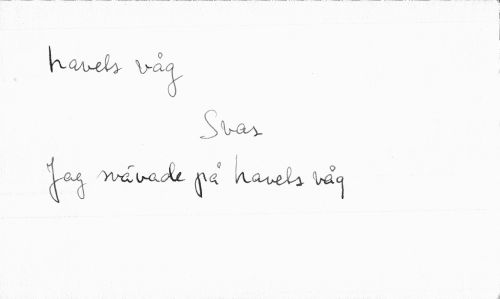 havets våg
Svar
Jag svävade på havets våg